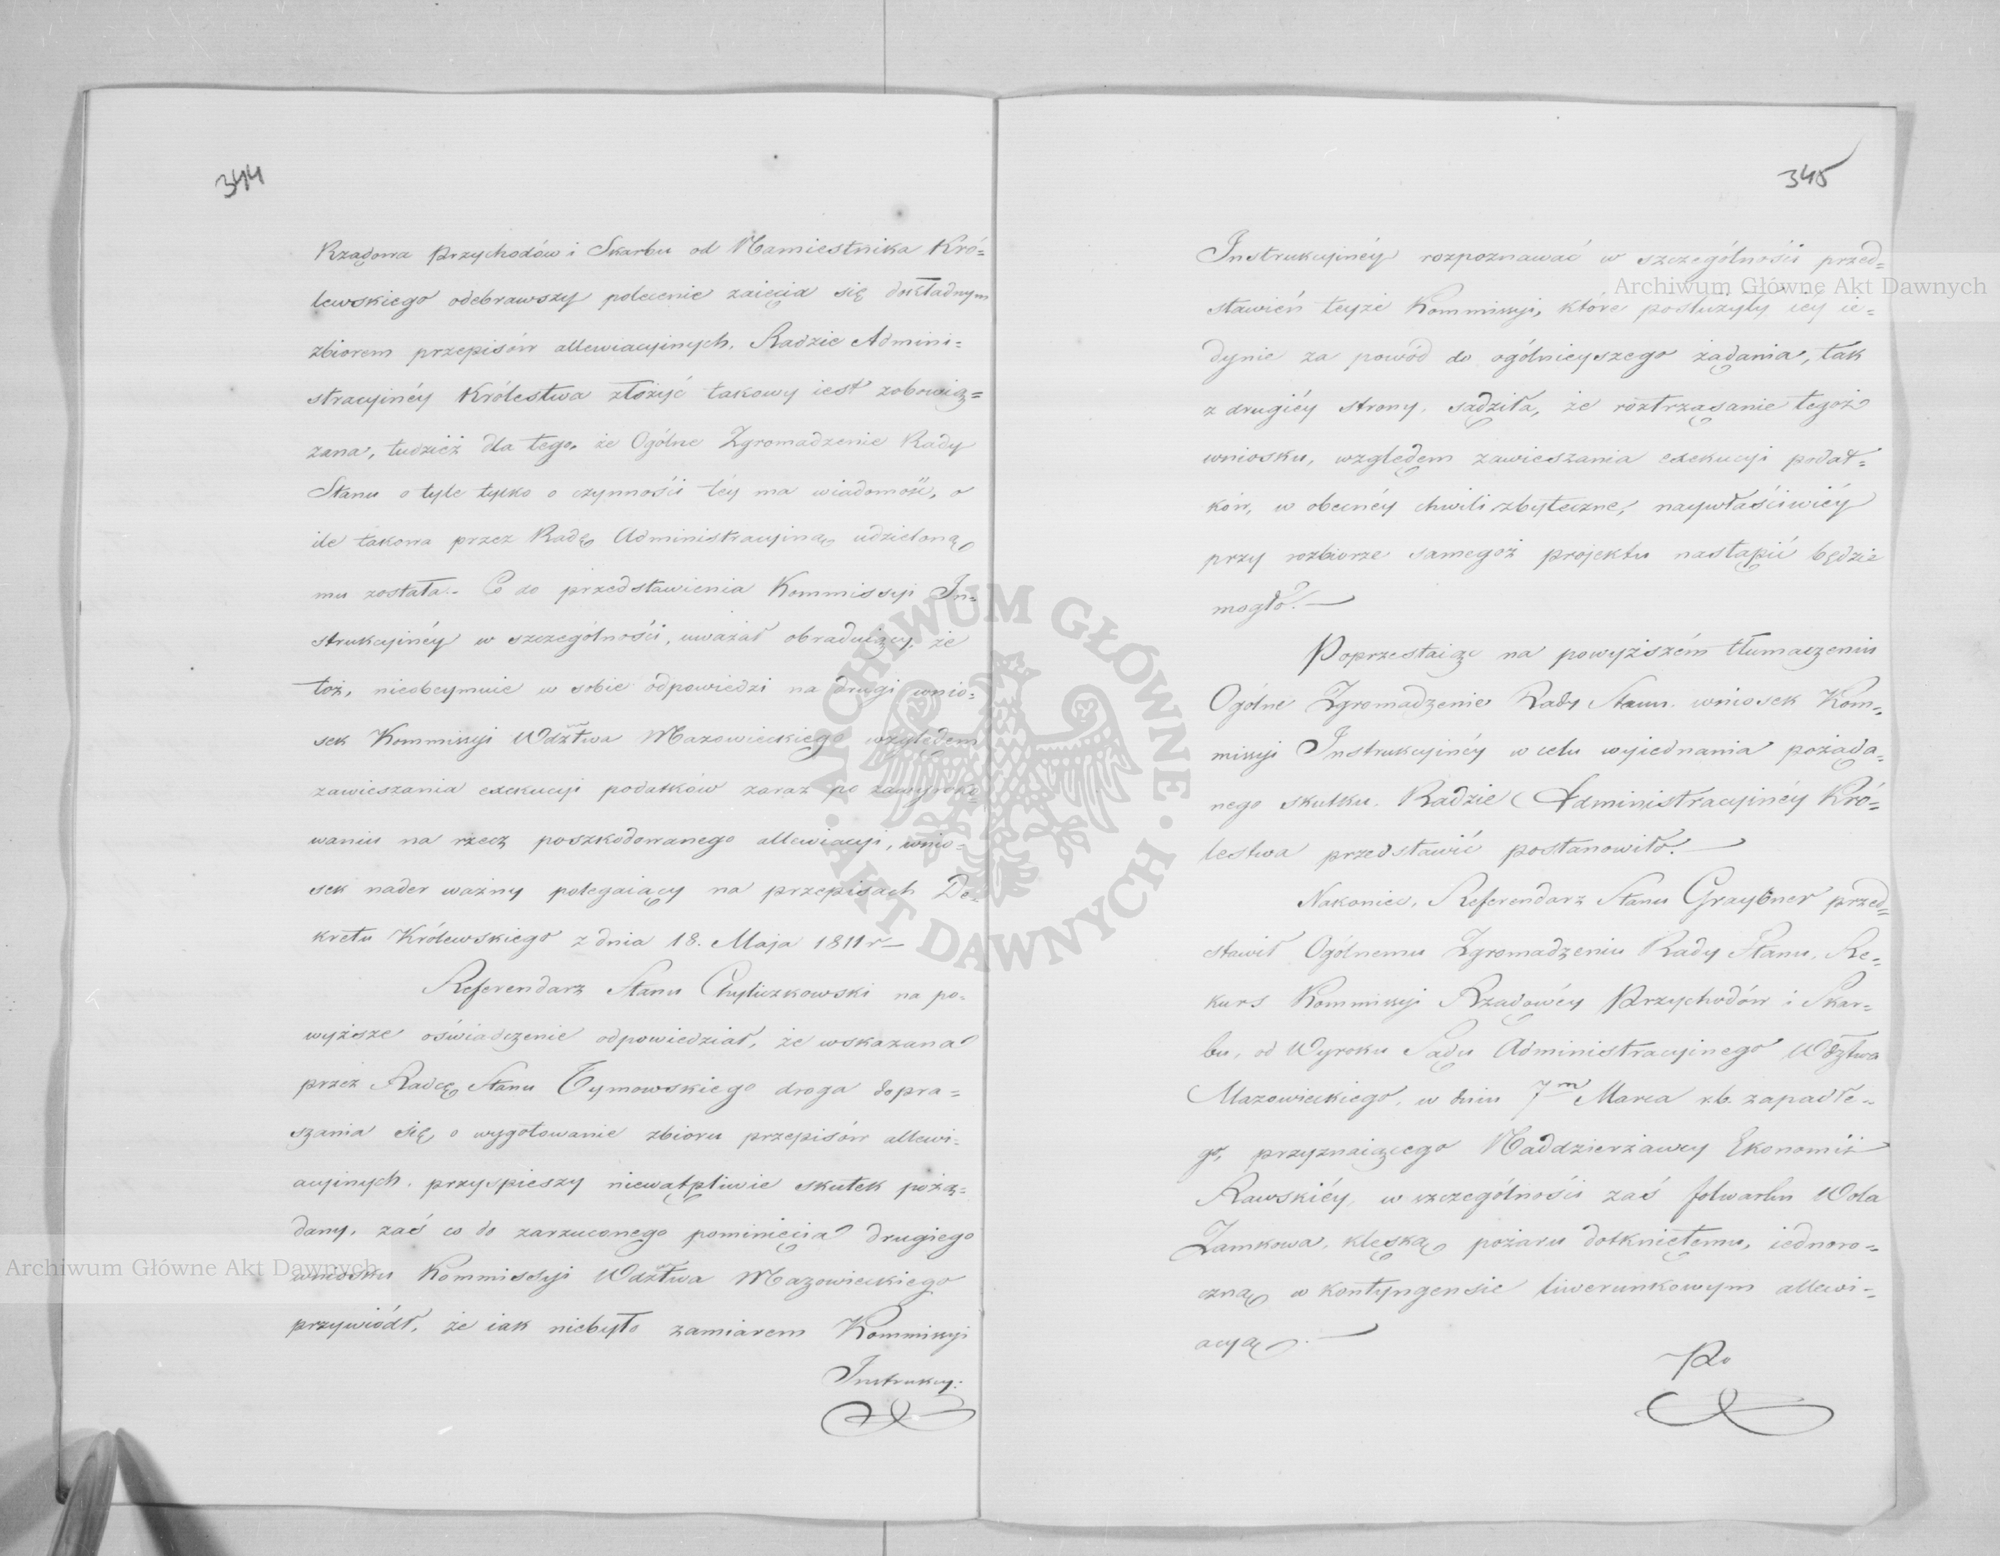 344
Rządowa Przychodów i Skarbu od Namiestnika Kró=
lewskiego odebrawszy polecenie zaięcia się dokładnym
zbiorem przepisów allewiacyinych, Radzie Admini=
stracyinéy Królestwa złożyć takowy iest zobowią=
zana, tudzież dla tego, że Ogólne Zgromadzenie Rady
Stanu o tyle tylko o czynności téy ma wiadomość, o
ile takowa przez Radę Administracyiną udzieloną
mu została.- Co do przedstawienia Kommissyi In=
strukcyinéy w szczególności, uważał obraduiący, że
toż, nieobeymuie w sobie odpowiedzi na drugi wnio=
sek Kommissyi Wdztwa Mazowieckiego względem
zawieszania exekucyi podatków zaraz po zawyroko=
waniu na rzecz poszkodowanego allewiacyi, wnio=
sek nader ważny polegaiący na przepisach De=
kretu Królewskiego z dnia 18. Maja 1811 r—
Referendarz Stanu Chyliczkowski na po=
wyższe oświadczenie odpowiedział, że wskazana
przez Radcę Stanu Tymowskiego droga dopra=
szania się, o wygotowanie zbioru przepisów allewi=
acyinych, przyspieszy niewątpliwie skutek pożą=
dany, zaś co do zarzuconego pominięcia drugiego
wniosku Kommissyi Wdztwa Mazowieckiego
przywiódł, że iak niebyło zamiarem Kommissyi
Instrukcy:
345
Instrukcyinéy rozpoznawać w szczególności przed=
stawień teyże Kommissyi, które posłużyły iéy ie=
dynie za powód do ogólnieyszego żądania, tak
z drugiéy strony, sądziła, że roztrząsanie tegoż
wniosku, względem zawieszania exekucyi podat=
ków, w obecnéy chwili zbyteczne, naywłaściwiéy
przy rozbiorze samegoż projektu nastąpić będzie
mogło.—
Poprzestaiąc na powyższém tłumaczeniu
Ogólne Zgromadzenie Rady Stanu, wniosek Kom=
missyi Instrukcyinéy w celu wyiednania pożąda=
nego skutku, Radzie Administracyinéy Kró=
lestwa przedstawić postanowiło.—
Nakoniec, Referendarz Stanu Graybner przed=
stawił Ogólnemu Zgromadzeniu Rady Stanu, Re=
kurs Kommissyi Rządowéy Przychodów i Skar=
bu, od Wyroku Sądu Administracyinego Wdztwa
Mazowieckiego, w dniu 7m Marca r.b. zapadłe=
go, przyznaiącego Naddzierżawcy Ekonomii
Rawskiéy, w szczególności zaś folwarku Wola
Zamkowa, klęską pożaru dotkniętemu, iednoro=
czną w kontyngensie liwerunkowym allewi=
acyą.—
Po
Archiwum Główne Akt Dawnych
Archiwum Główne Akt Dawnych
ARCHIWUM GŁÓWNE · AKT DAWNYCH ·